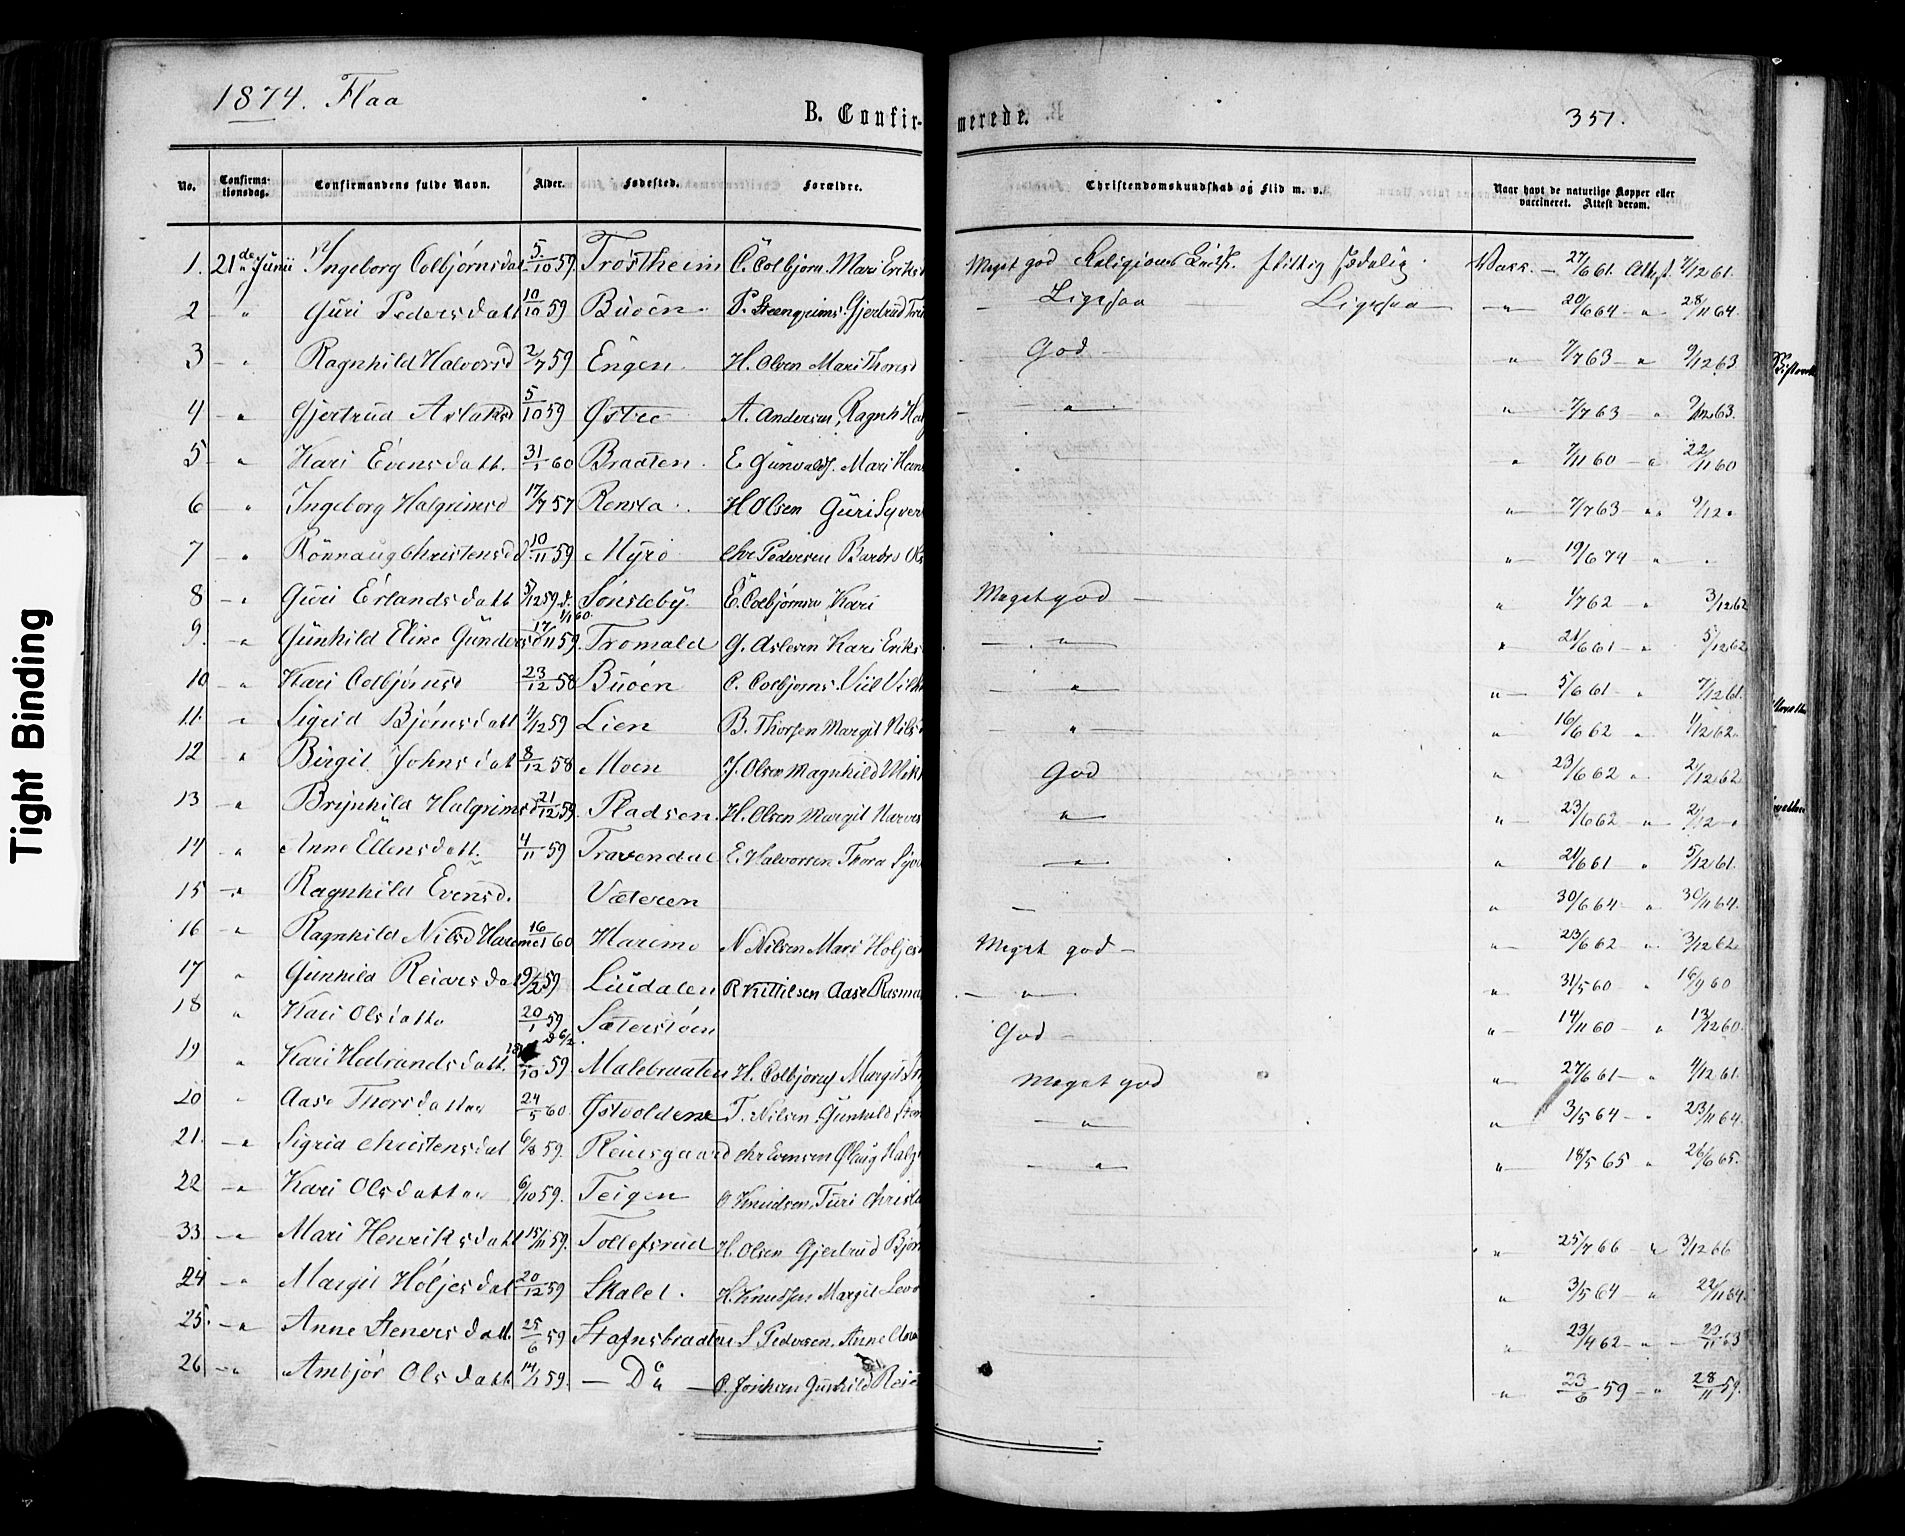 1874. Flaa
B. Confir-
merede.
351.
No.
Confirma-
tionsdag.
Confirmandens fulde Navn.
Alder.
Fødested.
Forældre.
Christendomskundskab og Flid m. v.
Naar havt de naturlige Kopper eller
vaccineret. Attest derom.
1. 21de Junii Ingeborg Colbjørnsdat 5/10 59. Trostheim C. Colbjørn. Mari Eriks Meget god Religions flittig sædelig. Vacc. — 27/6 61. Attest 7/12 61.
2 - " Guri Pedersdatt 10/10 59 Buøen P. Gjertrud — Ligesaa — Ligesaa — " 20/6 64 - " 28/11 64.
3 - " Ragnhild Halvorsd 2/7 59 Engen. H. Olsen Mari Thoresd God - " 7/7 63 - " 9/12 63
4 - " Gjertrud Aslaksd 5/10 59 Østre A. Andersen, Ragnh — " — " 7/7 63 " 9/12 63.
5 - " Kari Evensdatt. 31/1 60 Braaten. E Gunvalds. Mari " 7/11 60 - " 22/11 60
6 - " Ingeborg Halgrimsd 17/7 57 Rensta. H Olsen Guri Syver " 7/7 63 " 9/12 "
7 - " Rönnaug Christensd 10/11 59 Myro Chr Pedersen Barbro " 19/6 74 "
8 - " Guri Erlandsdatt 5/12 59 d. 1/1 60 Sønsteby. E. Colbjørnsen Kari Meget god — " 1/7 62 " 3/12 62
9. - " Gunhild Eline Gunders 17/11 59. Tromald G. Aslesen Kari Eriks — " — " 21/6 61 - " 5/12 62
10 - " Kari Colbjørnsd 23/12 58 Buøen C. Colbjørns. — " — " 5/6 61 " 7/12 61.
11. - " Sigrid Bjørnsdatt 4/12 59 Lien B. Thorsen Margit Nils — " — " 16/6 62 " 1/12 62
12 " Birgit Johnsdat 8/12 58 Moen J. Olsen Magnhild God " 23/6 62 " 2/12 62
13 - " Brynhild Halgrimsd 21/12 59. Pladsen. H. Olsen Margit — " — " 23/6 62 - " 2/12 - "
14 - " Anne Ellensdatt. 4/11 59 Travendal E. Halvorsen Thora — " — " 21/6 61 " 5/12 61.
15 - " Ragnhild Evensd. Væteren — " 30/6 64 - " 30/11 64.
16 - " Ragnhild Nilsd 16/1 60 Harime N Nilsen Mari Holjes Meget god — " 23/6 62 " 3/12 62
17 " Gunhild Reiersdat 9/2 59 Liudalen R Kittilsen Aase Rasmu — " — " 31/5 60 " 16/9 60
18 " Kari Olsdatte 20/1 59 Sæterstøen God — " 14/11 60 " 13/12 60.
19 " Kari 10 59. Malebraaten H. Colbjørns Margit Meget god " 27/6 61 " 4/12 61
20 " Aase Thorsdatter 24/5 60. Østvoldene T. Nilsen, Gunhild — " — " 3/5 64 - " 23/11 64.
21. - " Sigrid Christensdat 6/8 59. Reinsgaard Chr Evensen — " — " 18/5 65 " 26/6 65.
22 - " Kari Olsdatter 6/10 59. Teigen O Knudsen, Turi Christ
33. - " Mari Henriksdatt 15/11 59. Tollefsrud H. Olsen Gjertrud Bjør " 25/7 66 - " 3/12 66
24 - " Margit Holjesdat 20/12 59 Skalet. H. Knudsen Margit " 3/5 64 - " 22/11 64.
25. - " Anne Stenersdatt. 25/6 59 Stafnsbraaten S Pedersen. Anne " 23/4 62 - " - 20/11 63
26 - " Ambjør Olsdatt 14/1 59. — Do — O. Gunhild Reie " 23/6 59 - " 28/11 59.
Tight Binding